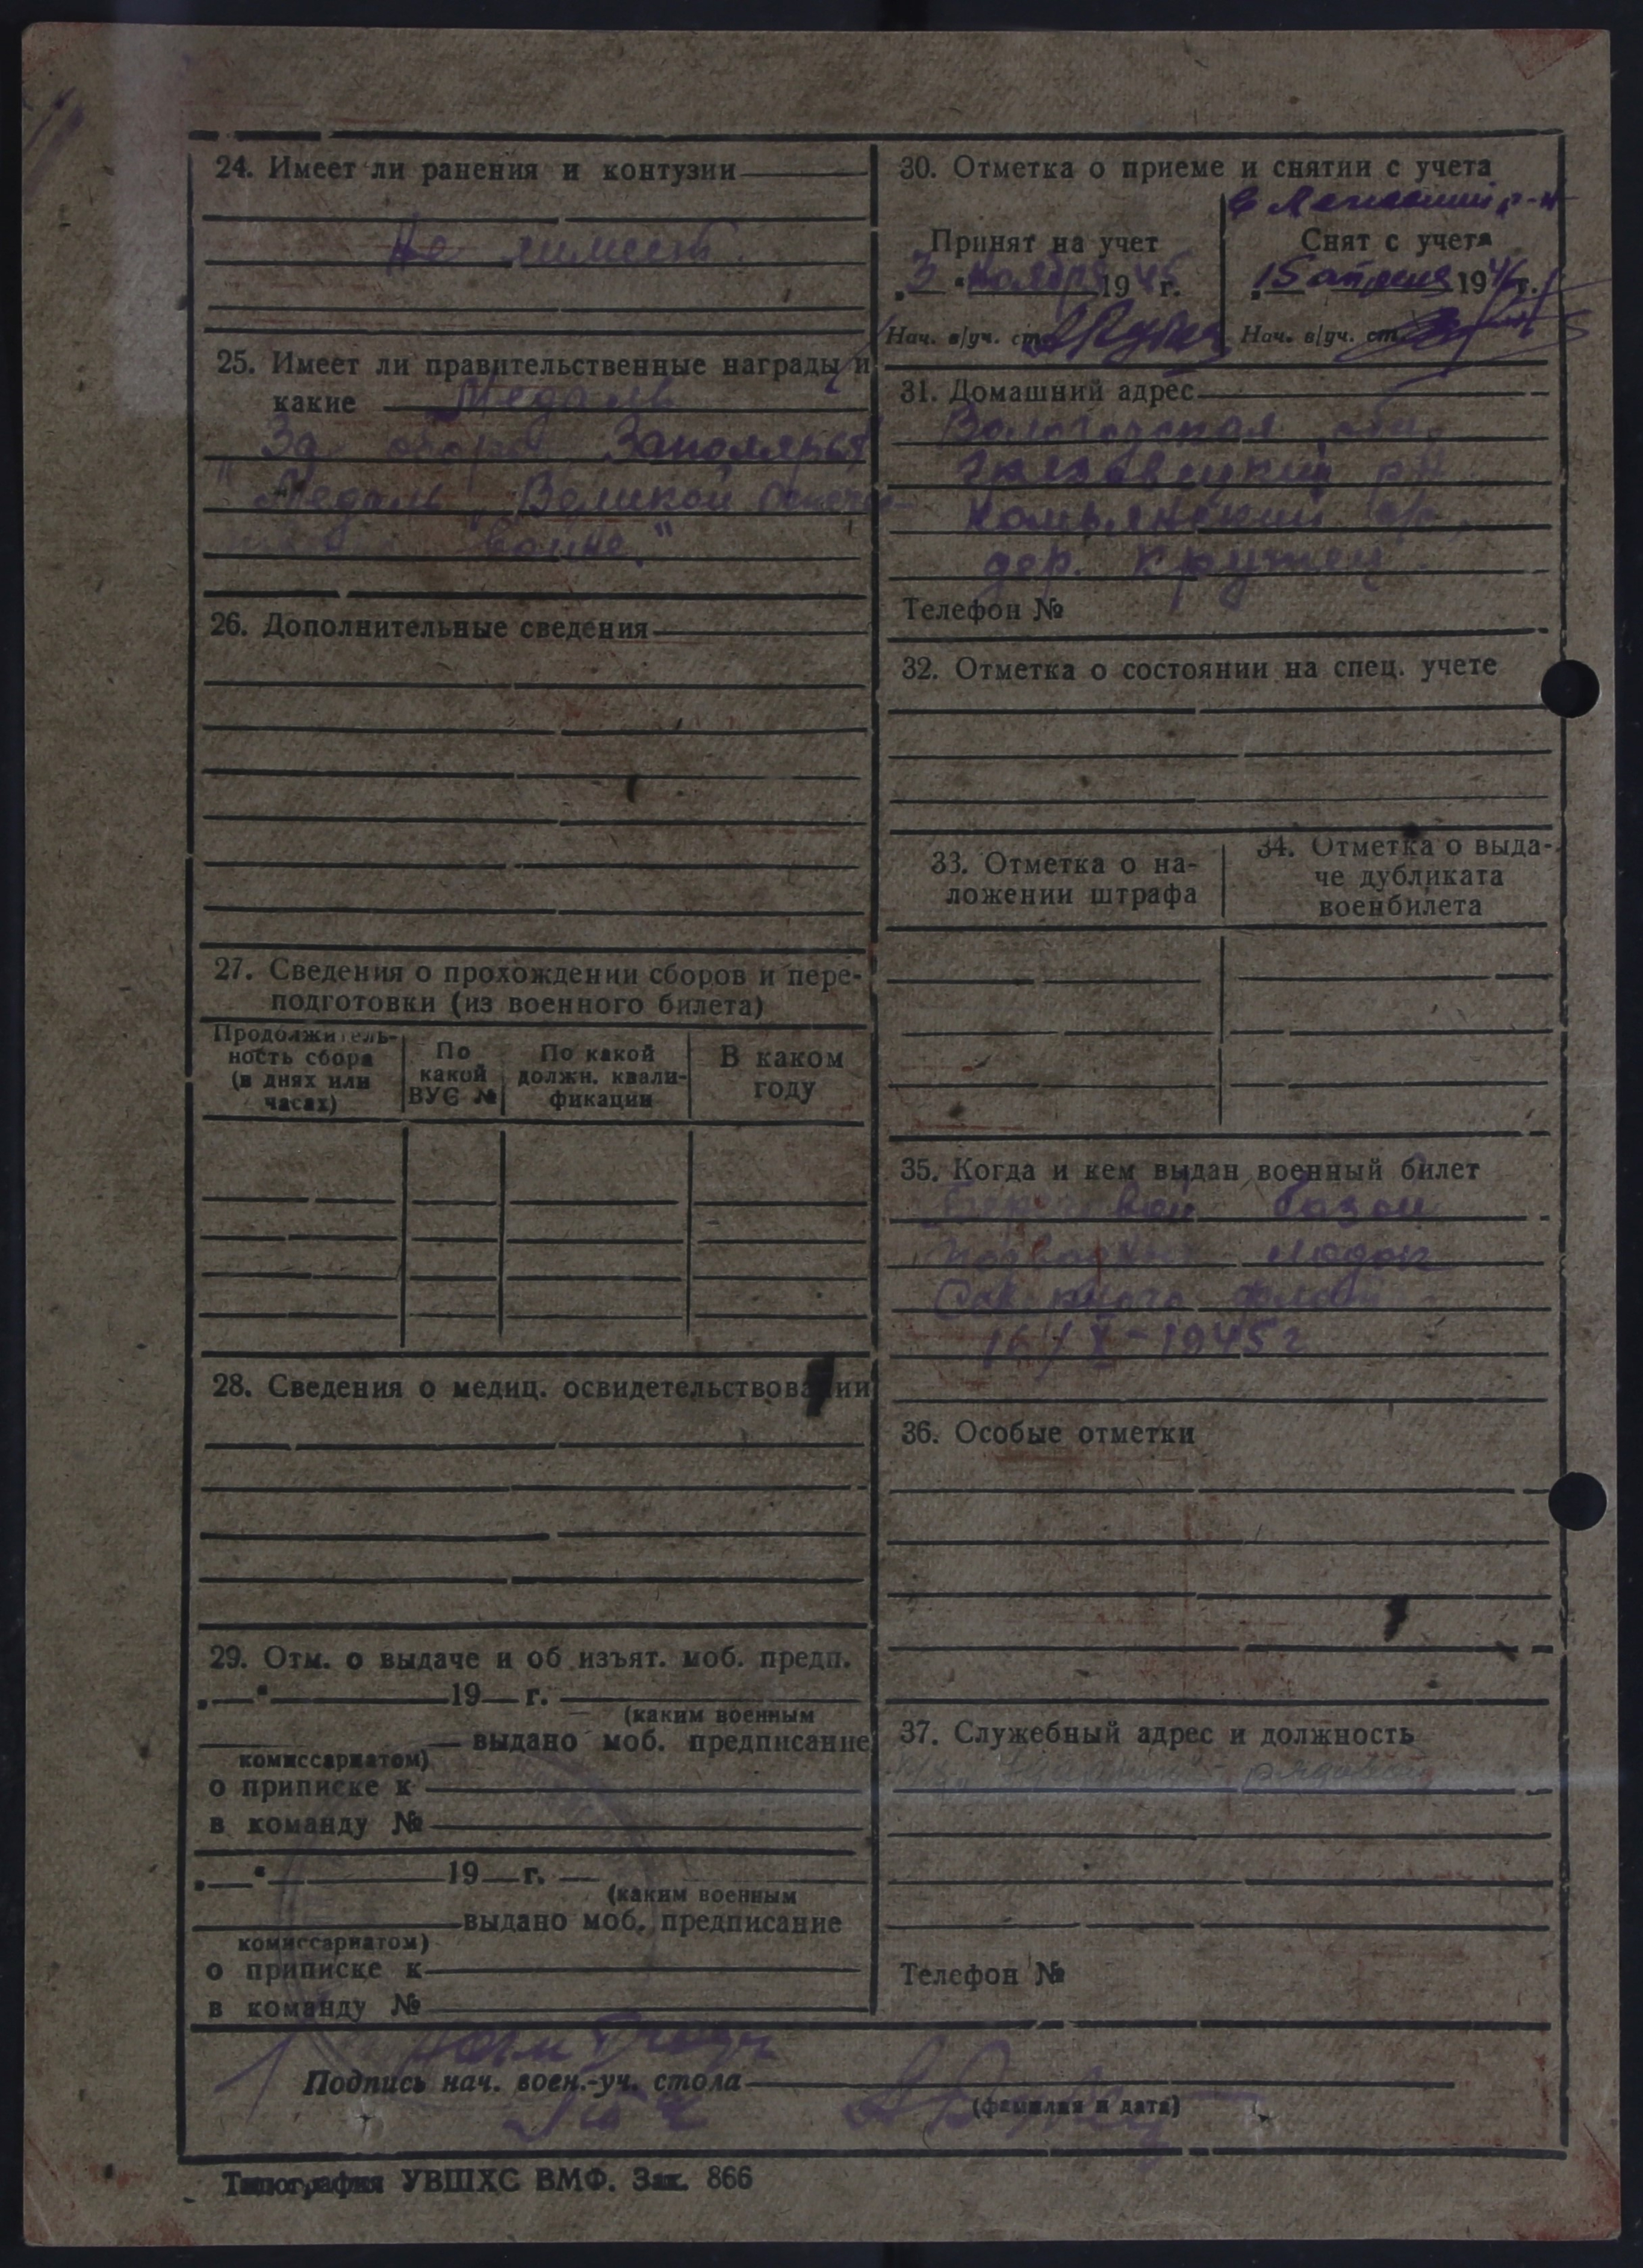 24. Имеет ли ранения и контузии
Не имеет.
25. Имеет ли правительственные награды и
какие Медаль
За оборо Заполярья
"Медаль Великой Отечес-
войне."
26. Дополнительные сведения
27. Сведения о прохождении сборов и пере-
подготовки (из военного билета)
Продолжитель-
ность сбора
(в днях или
часах)
По
какой
ВУС №
По какой
должн. квали-
фикации
В каком
году
28. Сведения о медиц. освидетельствовании
29. Отм. о выдаче и об изъят. моб. предп.
„ “ 19 г.
(каким военным
выдано моб. предписание
комиссариатом)
о приписке к
в команду №
„ “ 19 г.
(каким военным
выдано моб. предписание
комиссариатом)
о приписке к
в команду №
30. Отметка о приеме и снятии с учета
р-н
Принят на учет
„3“ ноября 1945 г.
Нач. в/уч. ст.
Снят с учета
„15 апреля 1946 г.
Нач. в/уч. ст.
31. Домашний адрес
Вологодская обл.
Грязовецкий р-н
Комьянский с/с,
дер. Кружец.
Телефон №
32. Отметка о состоянии на спец. учете
33. Отметка о на-
ложении штрафа
34. Отметка о выда-
че дубликата
военбилета
35. Когда и кем выдан военный билет
Береговой базой
подводных лодок
Северного флота
16/X-1945 г
36. Особые отметки
37. Служебный адрес и должность
Телефон №
Подпись нач. воен.-уч. стола
(фамилия и дата)
Типография УВШХС ВМФ. Зак. 866